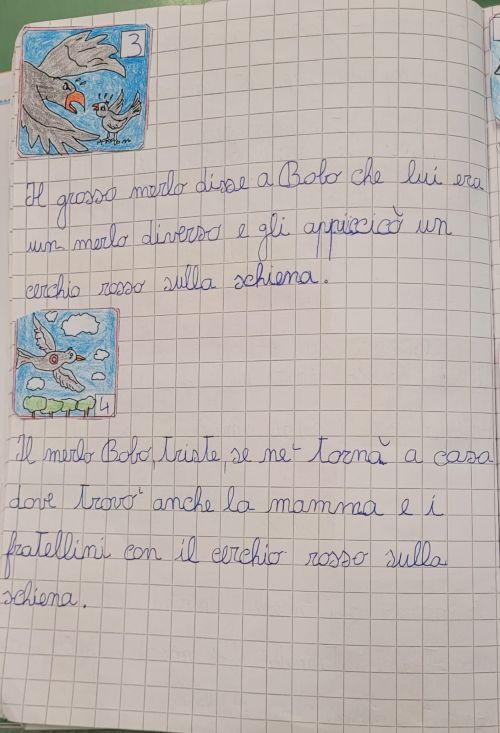 3
Il grosso merlo disse a Bobo che lui era
un merlo diverso e gli appiccicò un
cerchio rosso sulla schiena.
4
Il merlo Bobo, triste, se ne tornà a casa
dove trovò anche la mamma e i
fratellini con il cerchio rosso sulla
schiena.